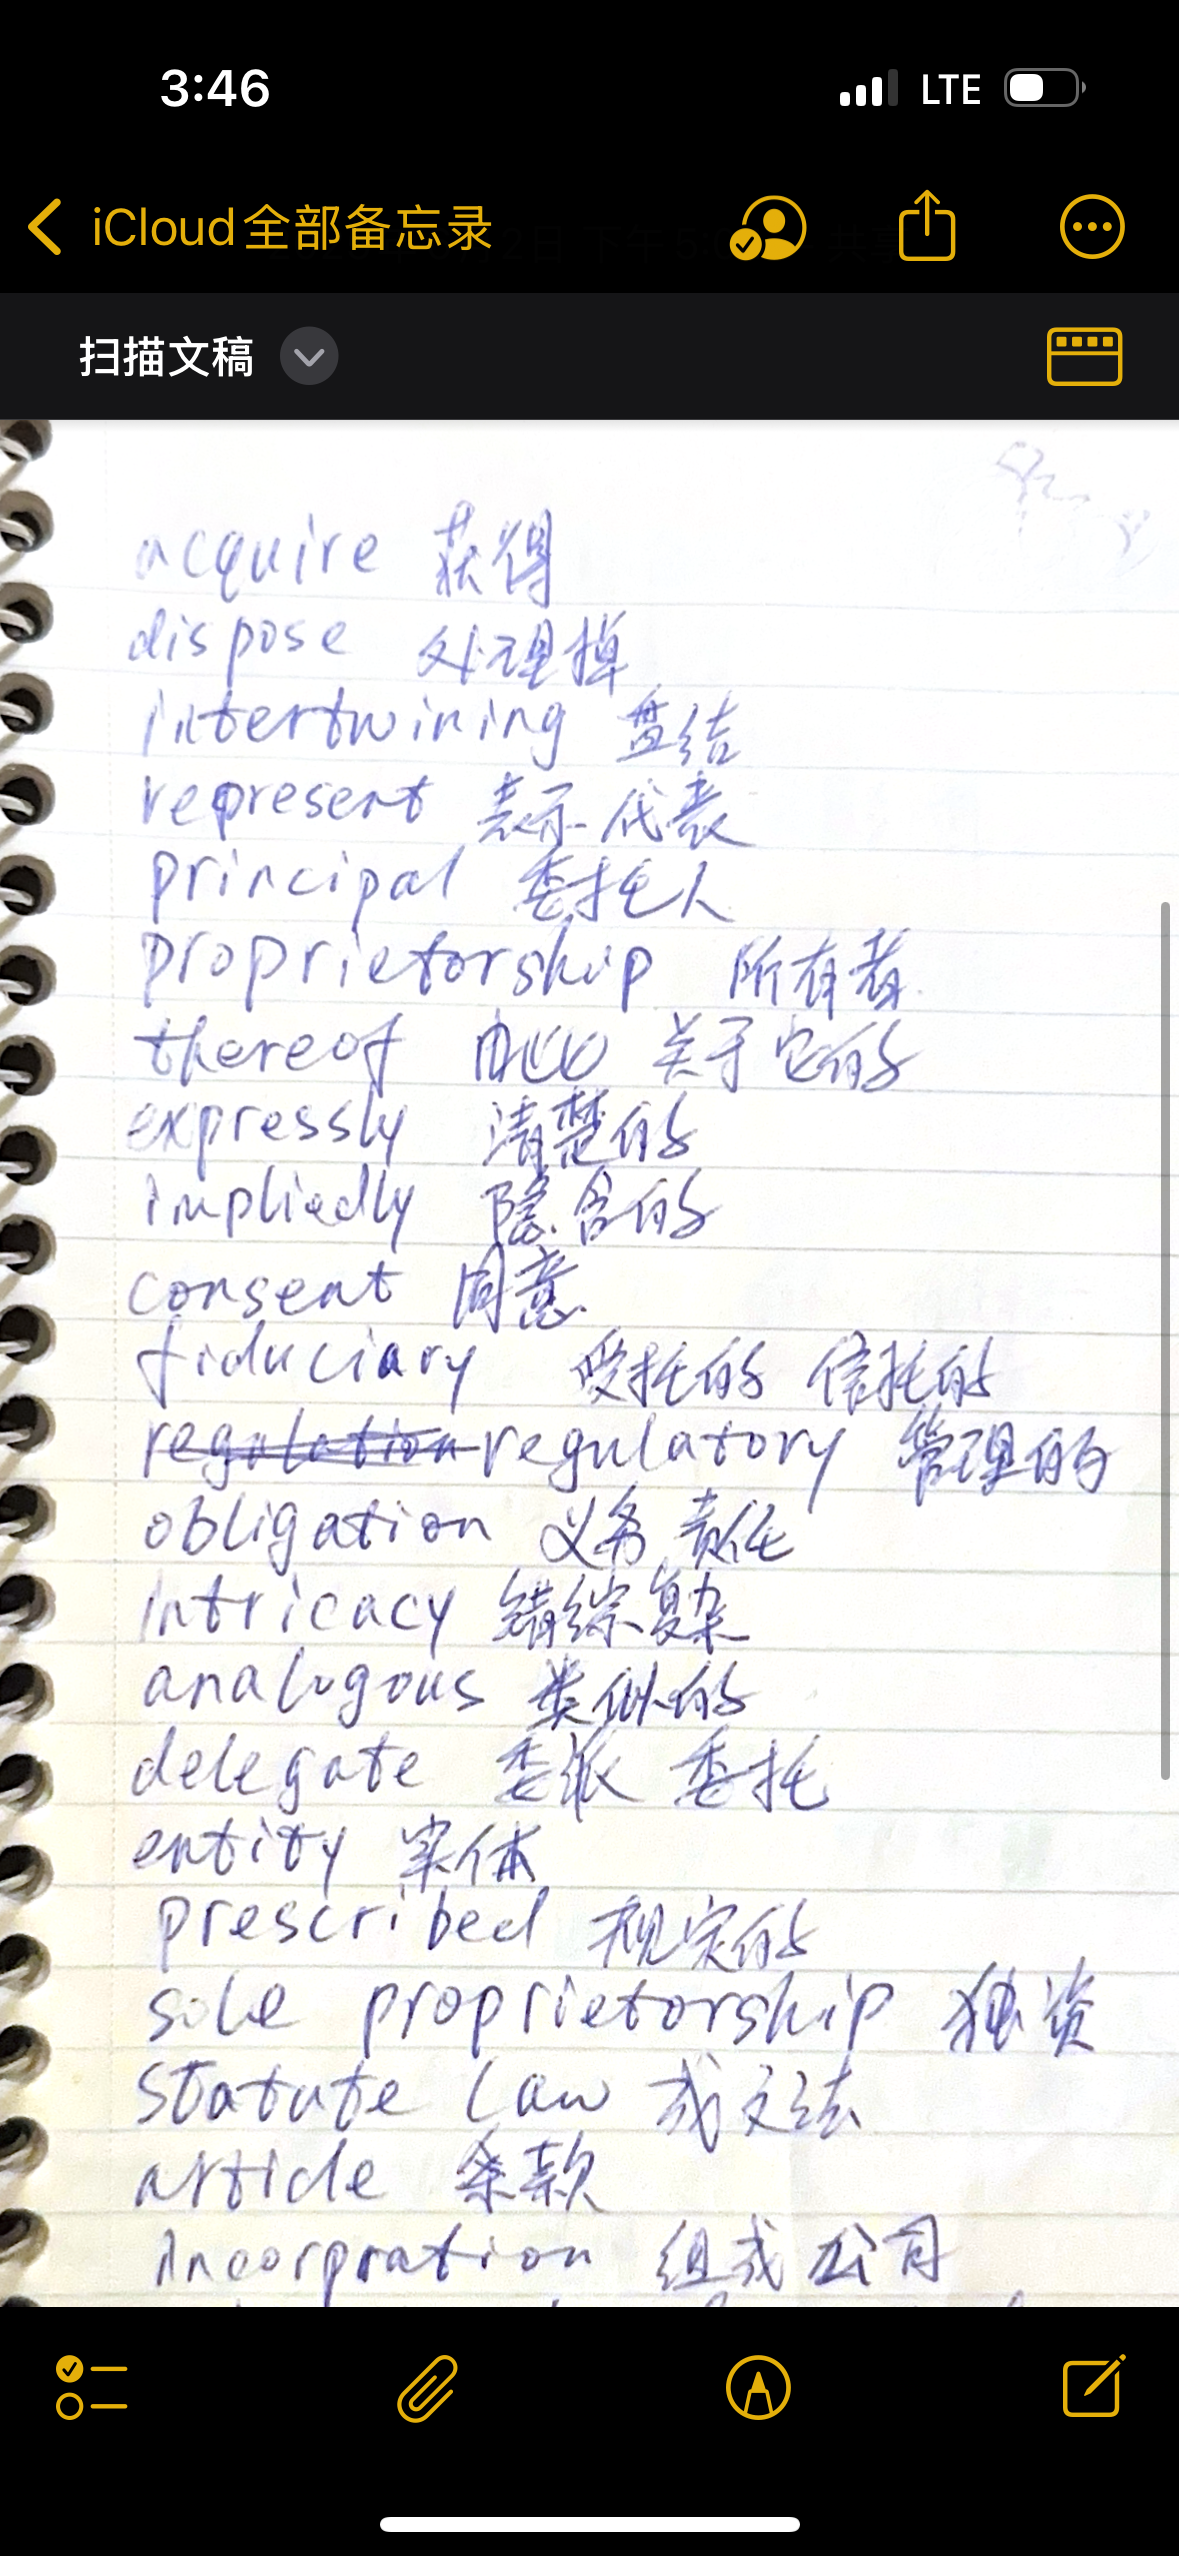 3:46 LTE
iCloud全部备忘录
扫描文稿
acquire 获得
dispose 处理掉
intertwining 盘结
represent 表示 代表
principal 委托人
proprietorship 所有者
thereof 关于它的
expressly 清楚的
impliedly 隐含的
consent 同意
fiduciary 受托的 信托的
regulation regulatory 管理的
obligation 义务 责任
intricacy 错综复杂
analogous 类似的
delegate 委派 委托
entity 实体
prescribed 规定的
sole proprietorship 独资
statute law 成文法
article 条款
incorpration 组成公司